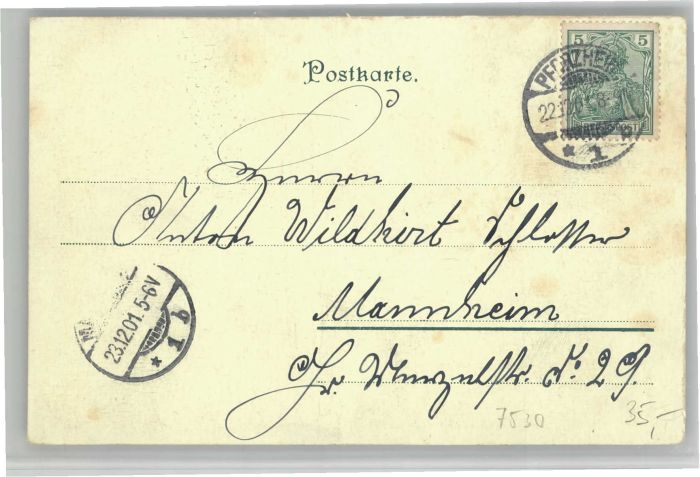 Postkarte.
5 5
PFORZHEIM
22.12.01
* 1
Herrn
Anton Wildhirt Schlosser
Mannheim
23.12.01.5-6V
* 1 b
No. 29.
7530
35,-